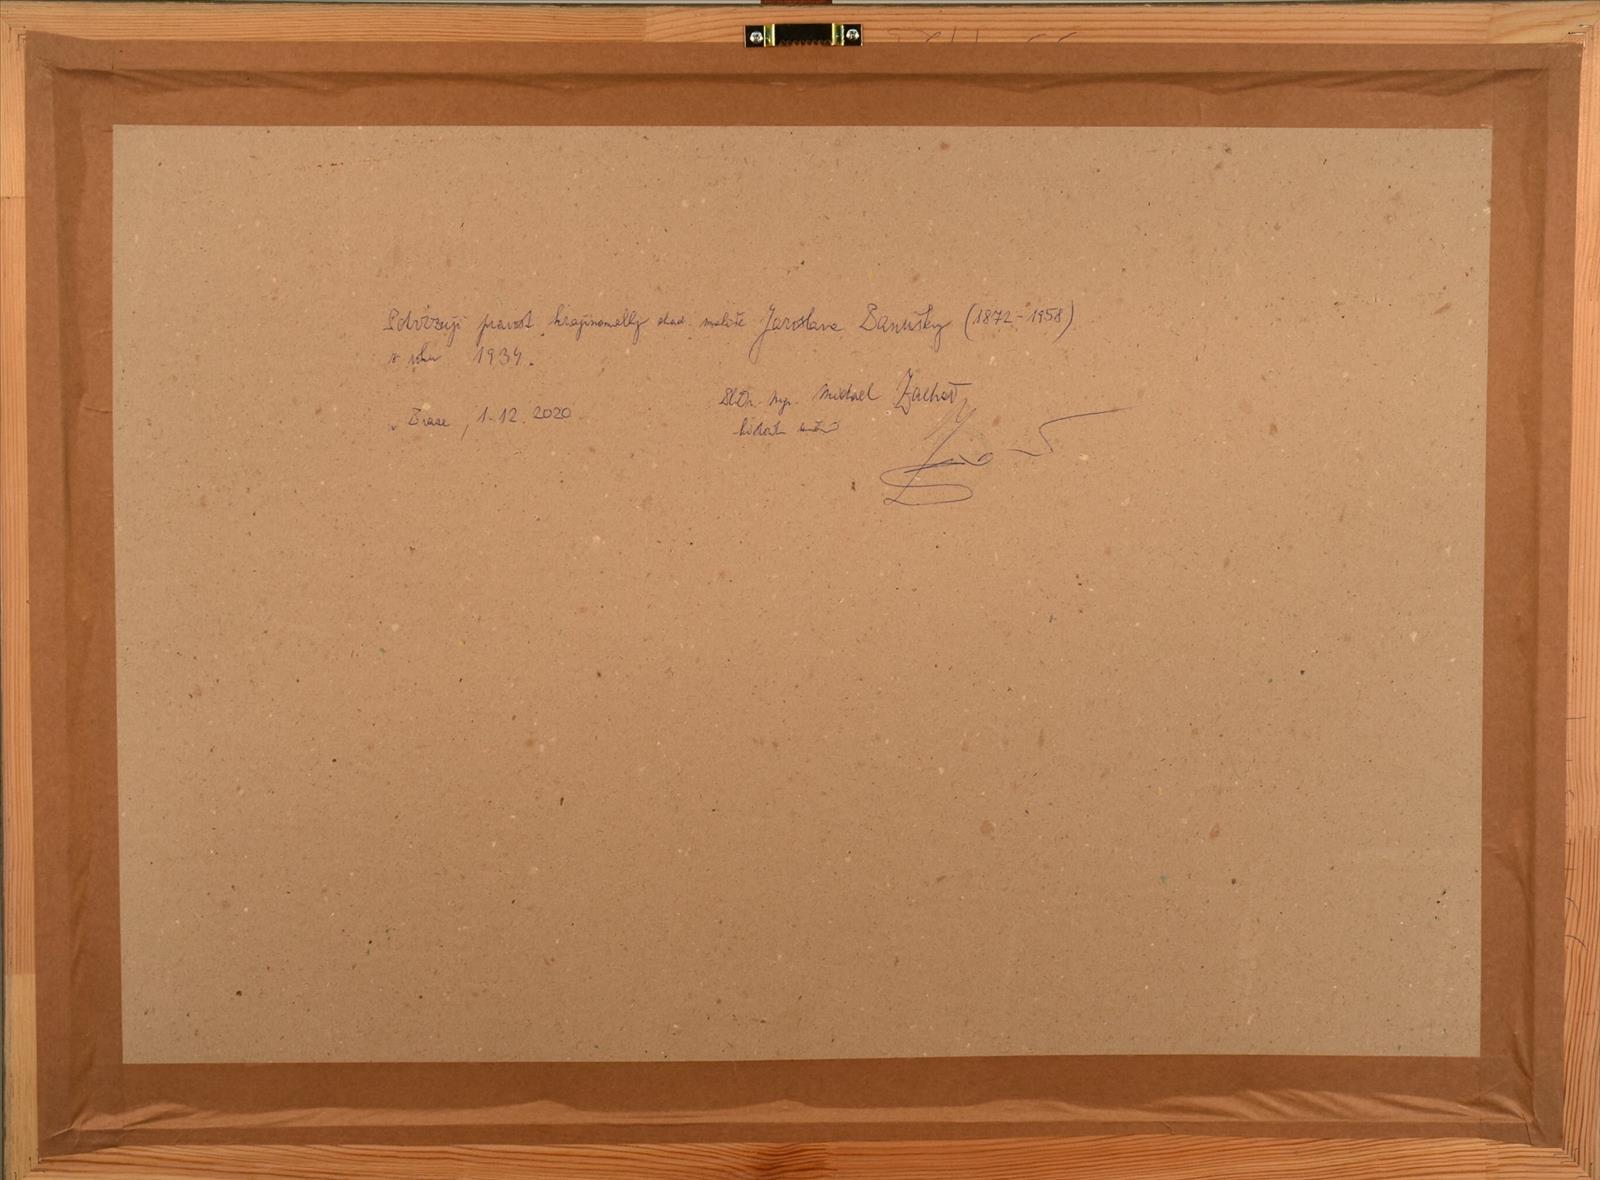 Potvrzuji pravost krajinomalby akad. malíře Jaroslava Panušky (1872-1958)
z roku 1934.
v Praze, 1.12.2020
Mgr. Michael Zachař
historik umění